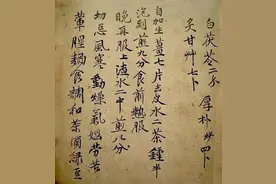 白茯苓二分 厚朴卅四卜
炙甘艸七卜
自加生薑七片去皮水二茶鍾半
煎九分食前熱服
晚再服上滷水二中煎八分
切忌風寒動燥氣媼勞苦
葷腥麵食糯和茶菌綠豆